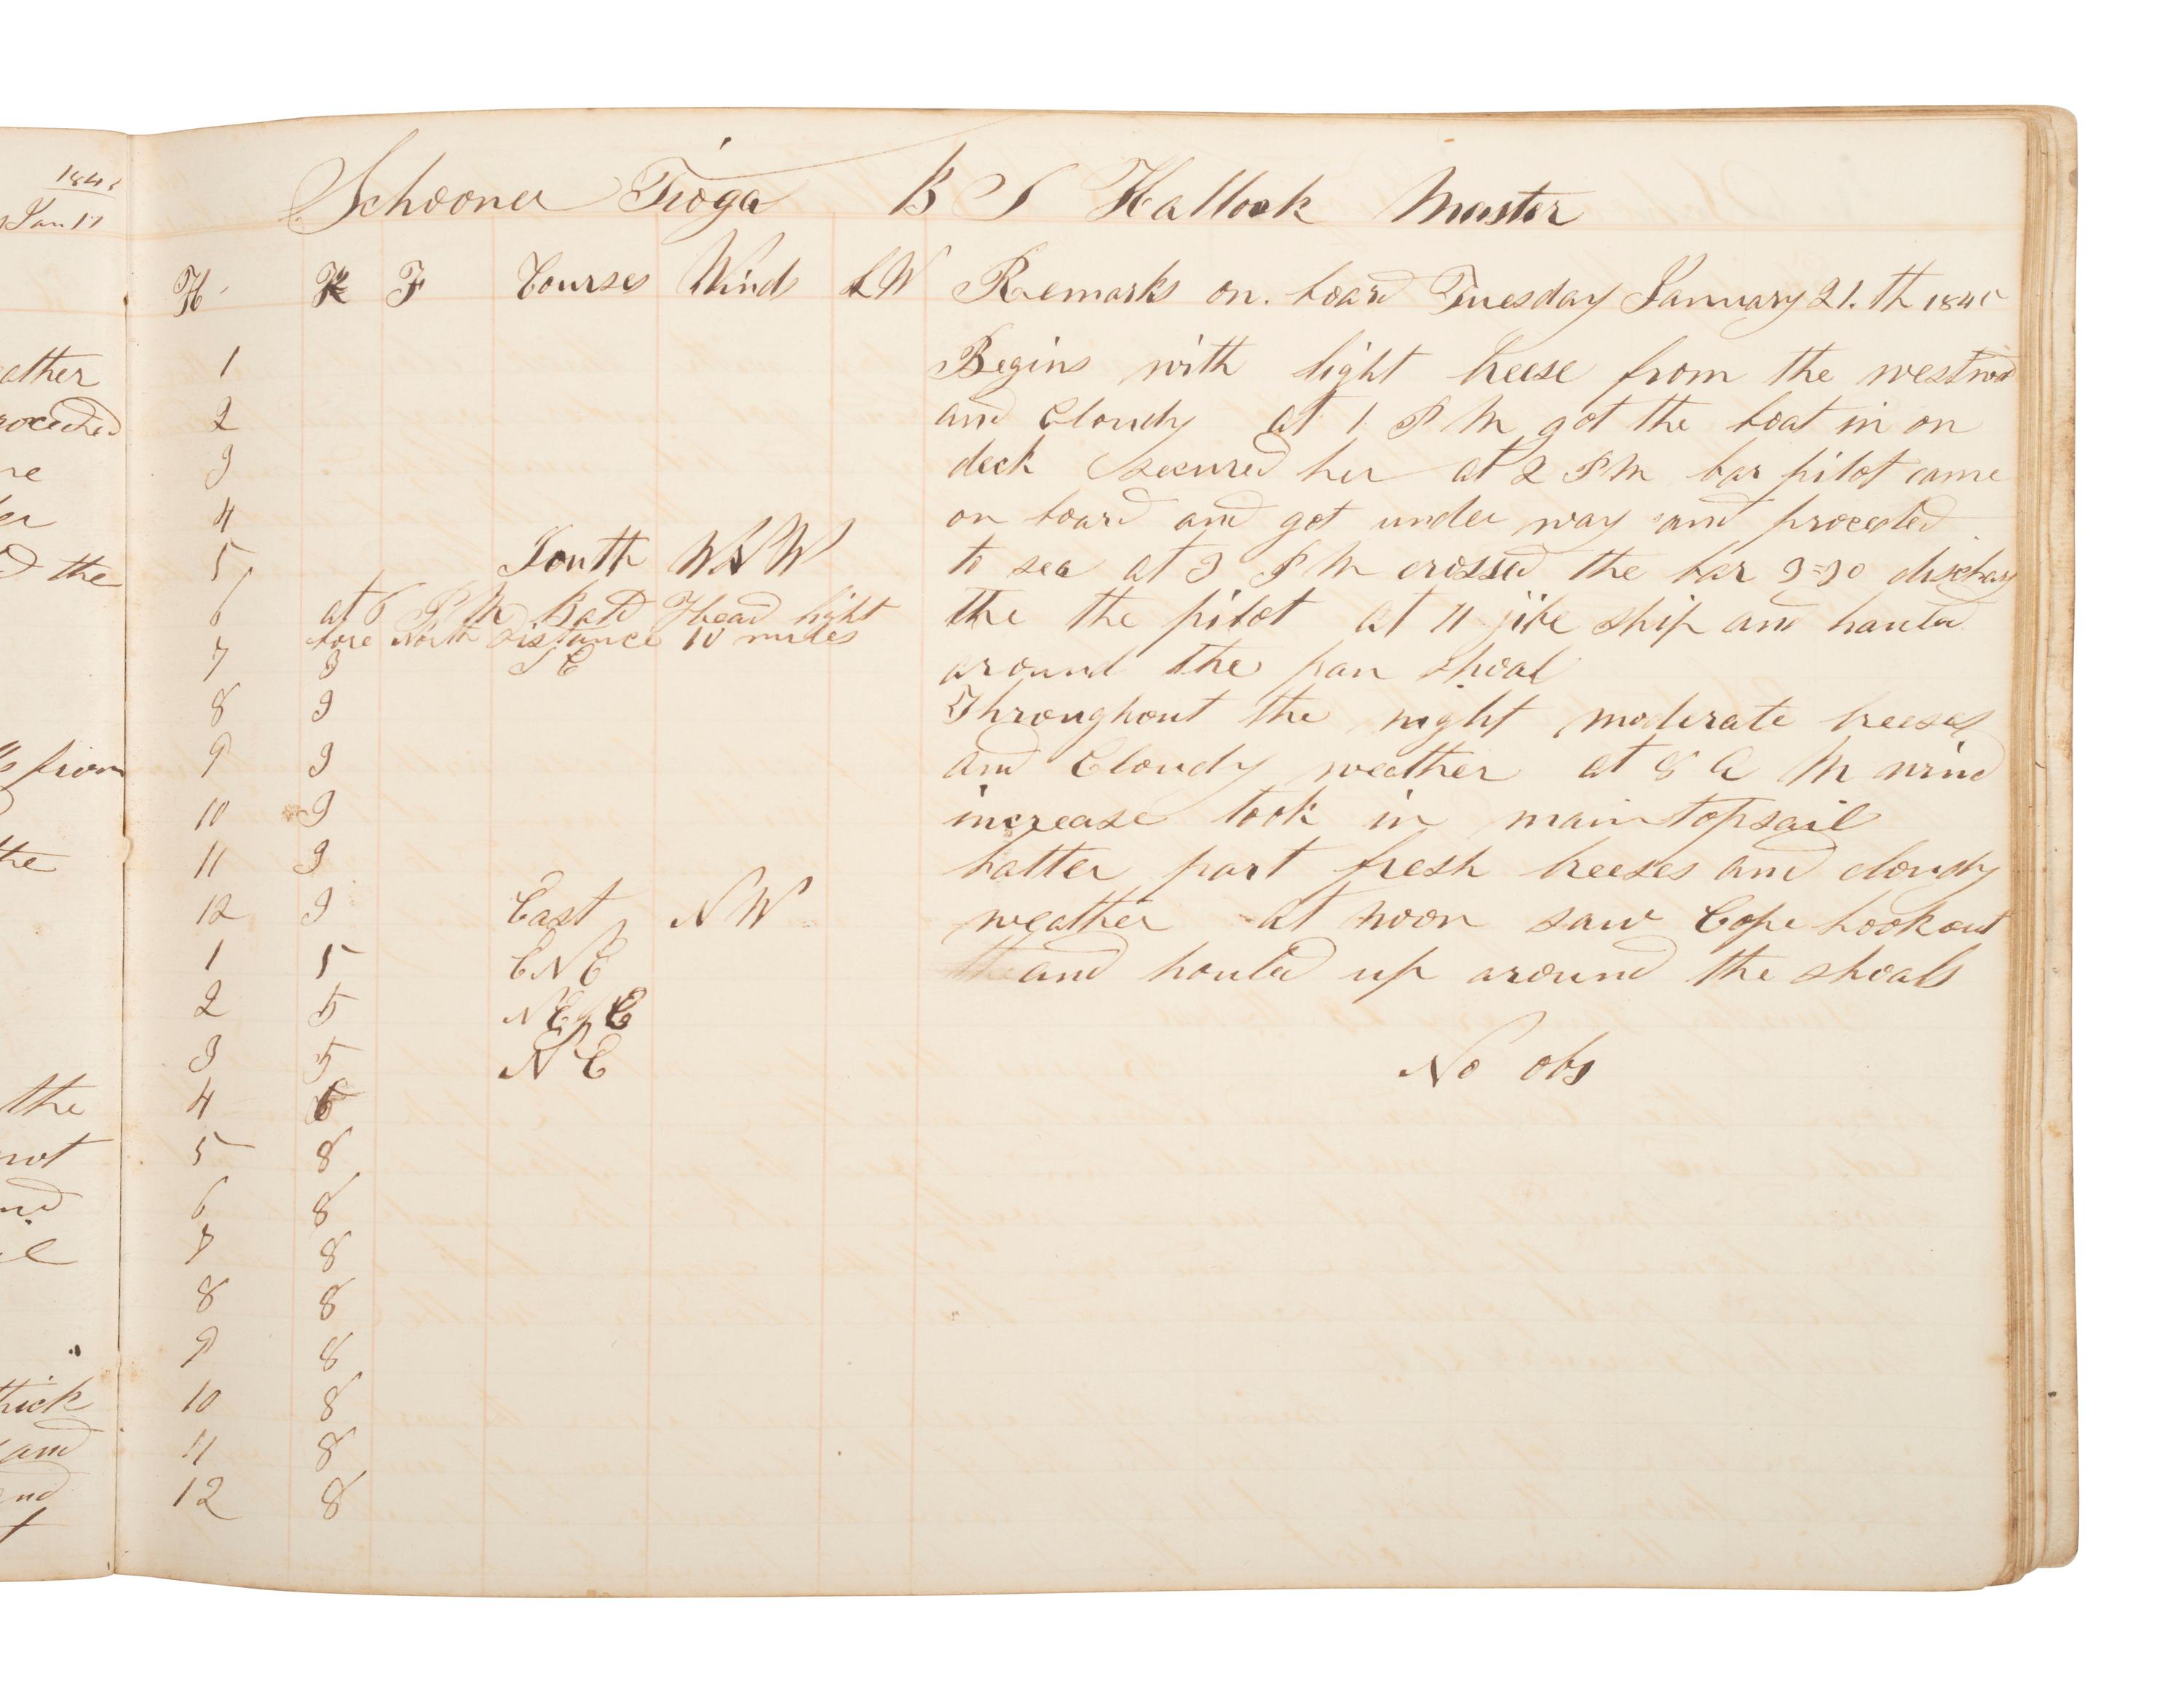 1845
Jan 17
ather
roceeded
ne
er
d the
from
the
the
not
and
thick
and
and
Schooner Tioga B S Hallock Master
H K F Courses Winds LW Remarks on board Tuesday January 21.th 1845
1 Begins with light breese from the westwrd
2 and Cloudy at 1 P M got the boat in on
3 deck secured her at 2 P M bar pilot came
4 on board and got under way and proceeded
5 South WSW to sea at 3 P M crossed the bar 3=30 discharg
6 at 6 P M Bald Head light the the pilot at 11 jibe ship and hauled
bore North Distance 10 miles
7 3 S E around the pan shoal
8 3 Throughout the night moderate breeses
9 3 and Cloudy weather at 8 A M wind
10 3 increase took in main topsail
11 3 Latter part fresh breezes and cloudy
12 3 East N W weather at noon saw Cape Lookout
1 5 ENE and hauled up around the shoals
2 5 NE by E
3 5 N E No obs
4 6
5 8
6 8
7 8
8 8
9 8
10 8
11 8
12 8